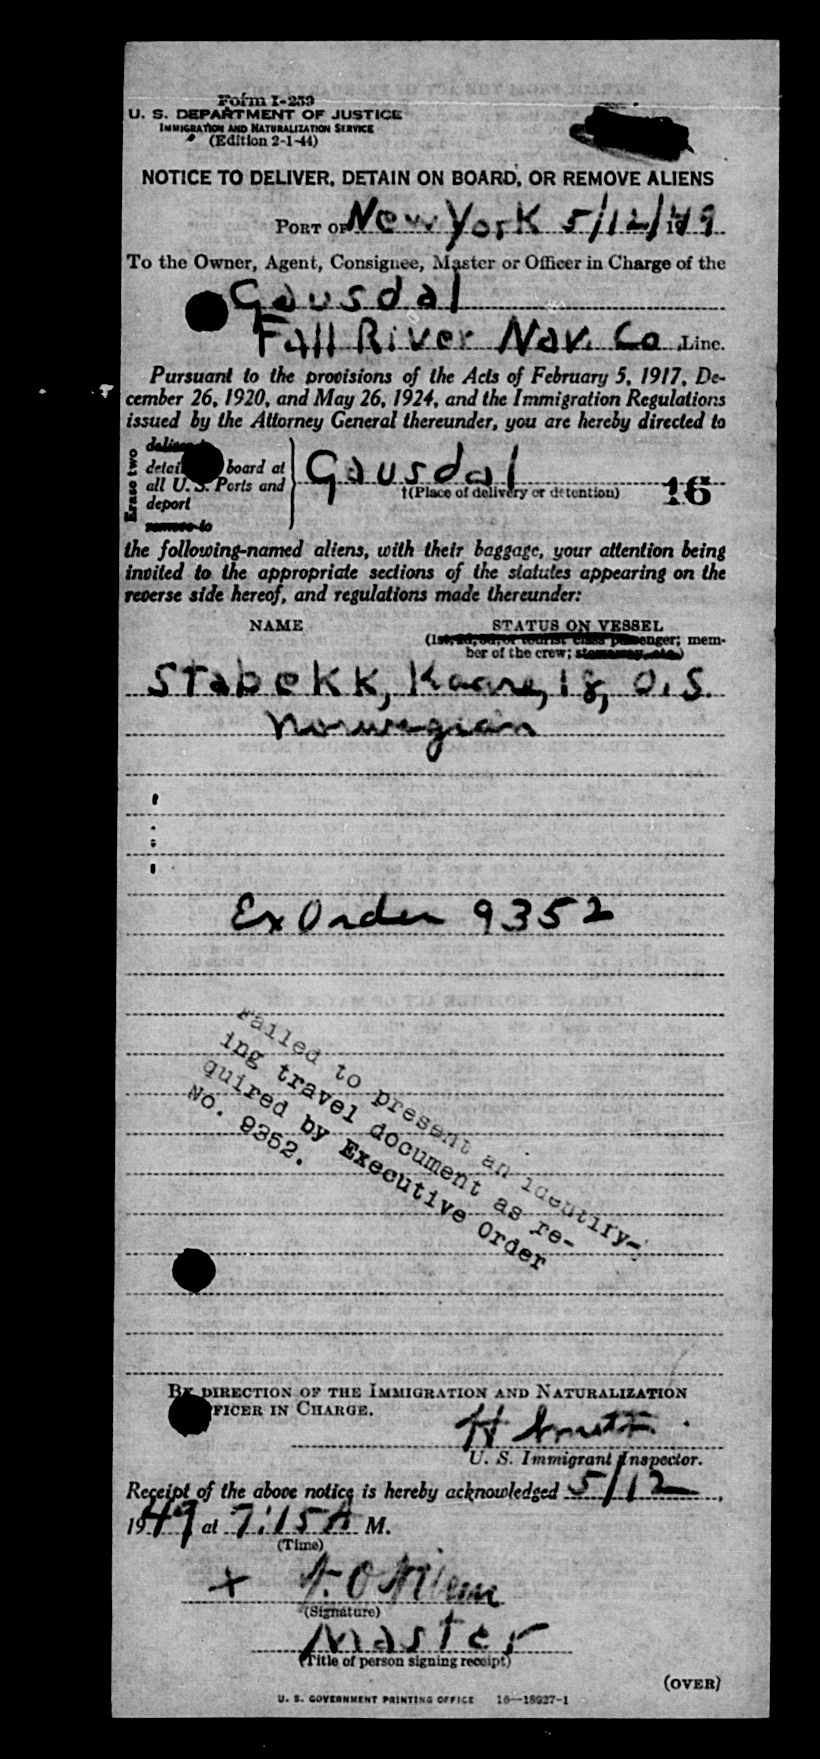 Form I-259
U. S. DEPARTMENT OF JUSTICE
IMMIGRATION AND NATURALIZATION SERVICE
(Edition 2-1-44)
NOTICE TO DELIVER, DETAIN ON BOARD, OR REMOVE ALIENS
PORT OF New York 5/12/1949
To the Owner, Agent, Consignee, Master or Officer in Charge of the
Gausdal
Fall River Nav. Co Line.
Pursuant to the provisions of the Acts of February 5, 1917, De-
cember 26, 1920, and May 26, 1924, and the Immigration Regulations
issued by the Attorney General thereunder, you are hereby directed to
Erase two
board at
all U. S. Ports and
deport
Gausdal
†(Place of delivery or detention) 16
the following-named aliens, with their baggage, your attention being
invited to the appropriate sections of the statutes appearing on the
reverse side hereof, and regulations made thereunder:
NAME STATUS ON VESSEL
(1st, 2d, 3d, or tourist class passenger; mem-
ber of the crew;
Stabekk, Kaare, 18, O.S.
Norwegian
Ex Order 9352
Failed to present an identify-
ing travel document as re-
quired by Executive Order
No. 9352.
BY DIRECTION OF THE IMMIGRATION AND NATURALIZATION
OFFICER IN CHARGE.
H
U. S. Immigrant Inspector.
Receipt of the above notice is hereby acknowledged 5/12,
1949 at 7:15 A M.
(Time)
x
(Signature)
Master
(Title of person signing receipt)
(OVER)
U. S. GOVERNMENT PRINTING OFFICE 16—18027-1